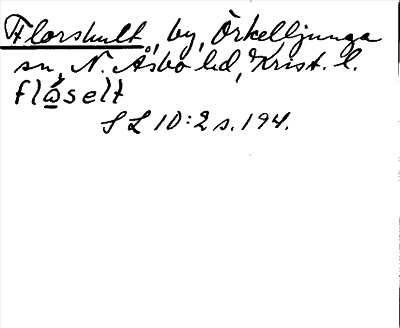 Florshult, by, Örkelljunga
sn, N. Åsbo hd, Krist. l.
flǻselt
SL 10:2 s. 194.